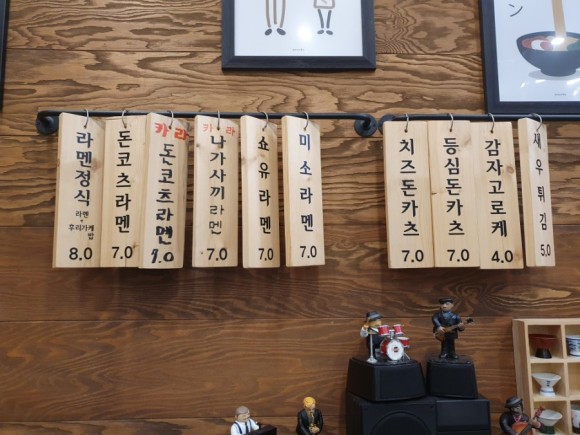 라멘정식
라멘
+
후리가케
밥
8.0
돈코츠라멘
7.0
카라
돈코츠라멘
9.0
카라
나가사끼라멘
7.0
쇼유라멘
7.0
미소라멘
7.0
치즈돈카츠
7.0
등심돈카츠
7.0
감자고로케
4.0
새우튀김
5.0
ン